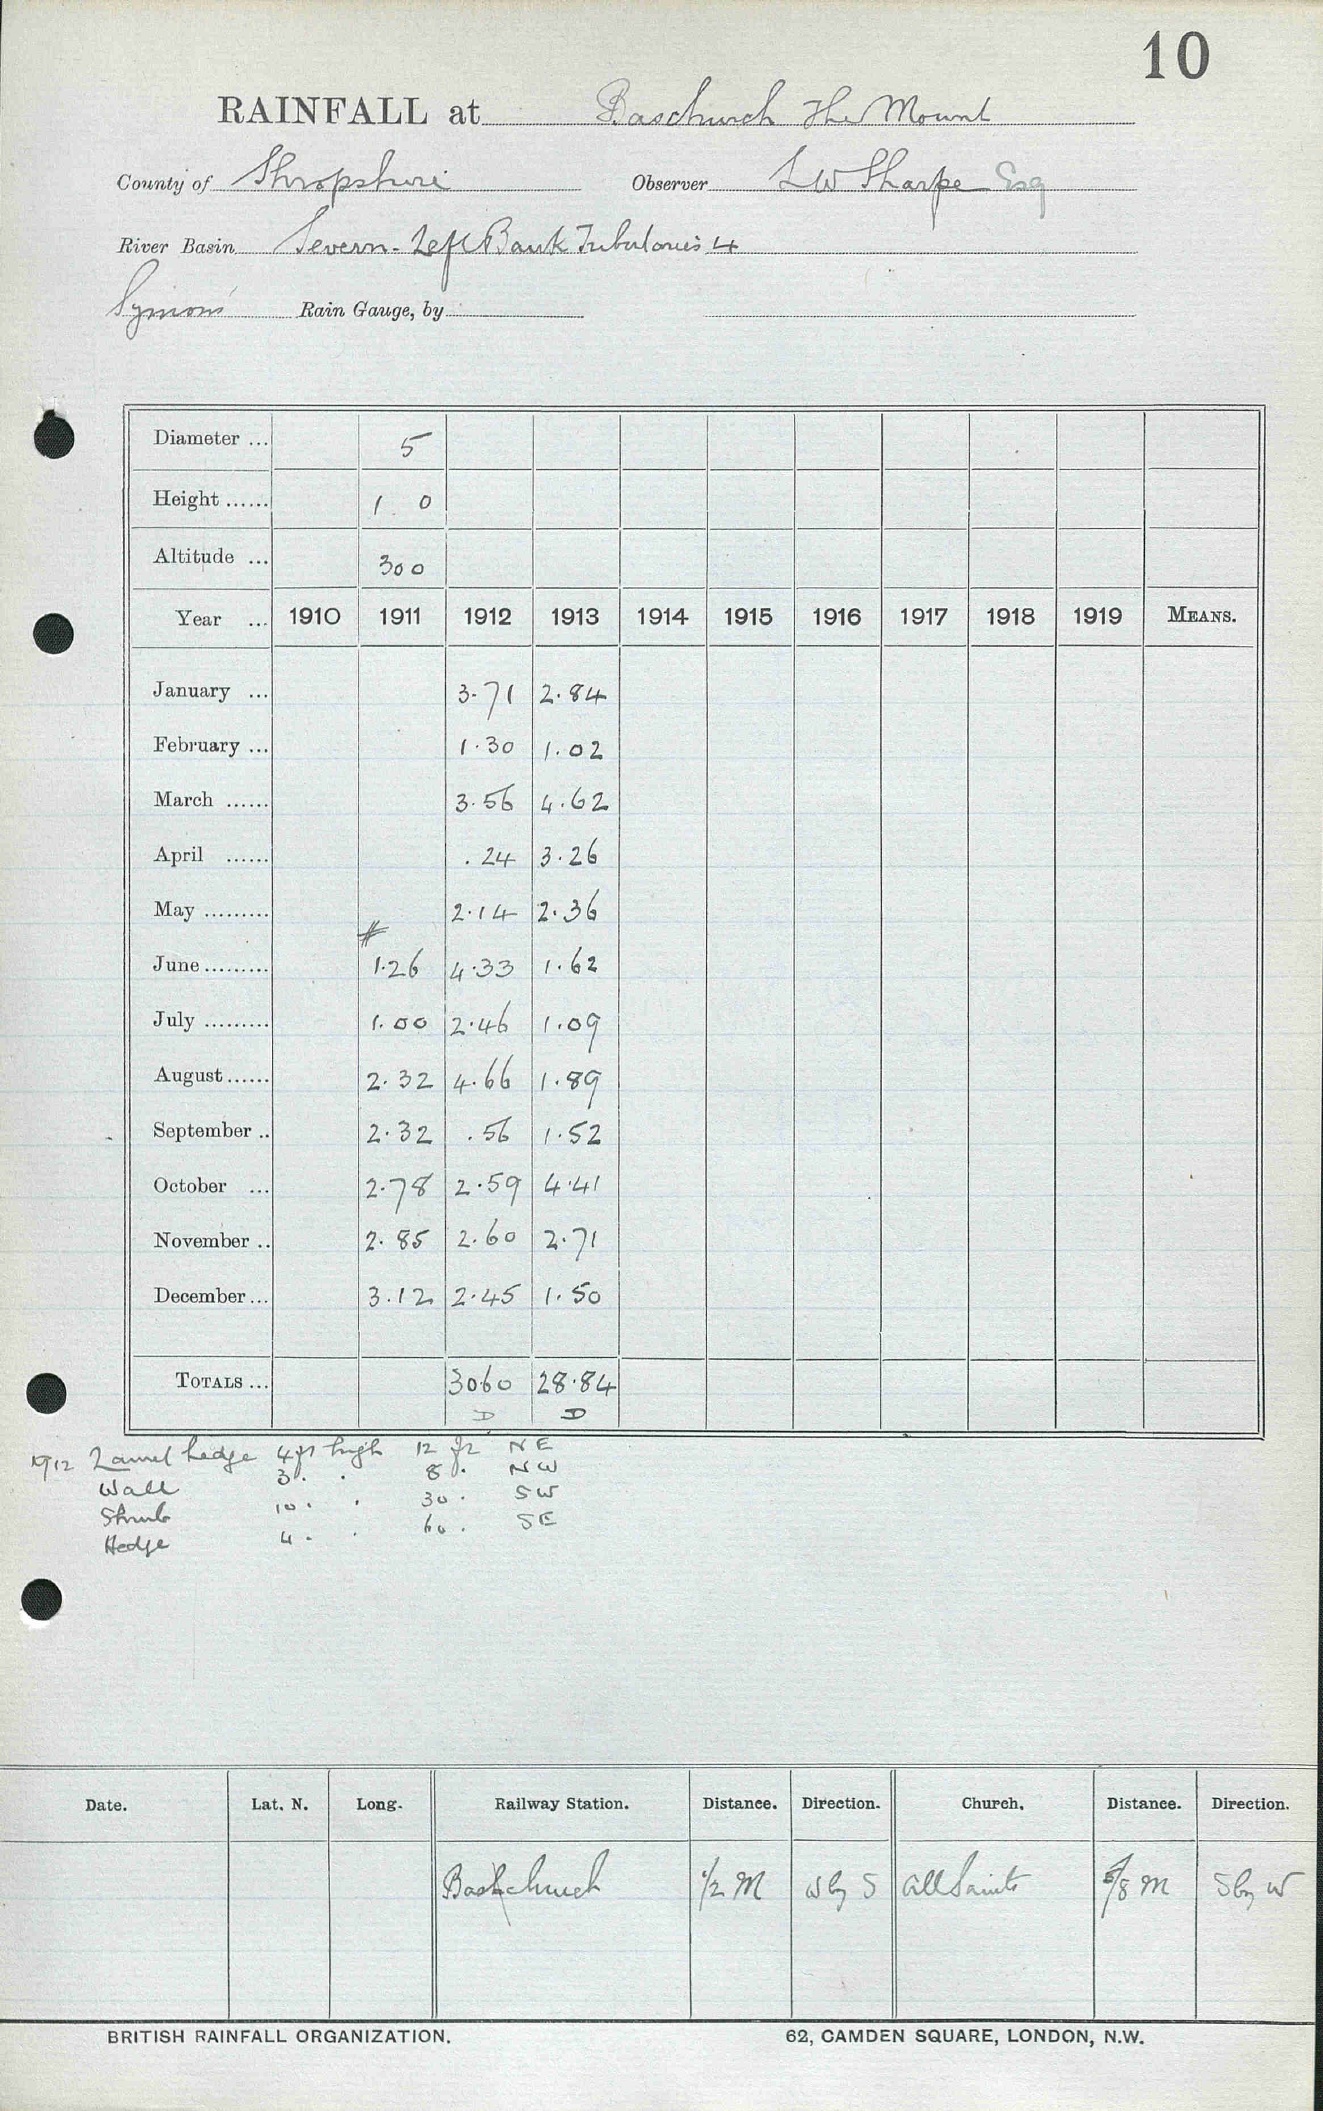 10
RAINFALL at Baschurch The Mount
County of Shropshire Observer L W Sharpe Esq
River Basin Severn - Left Bank Tributaries 4
Symons' Rain Gauge, by
Diameter ... 5
Height ...... 1 0
Altitude ... 300
Year ... 1910 1911 1912 1913 1914 1915 1916 1917 1918 1919 MEANS.
January ... 3.71 2.84
February ... 1.30 1.02
March ...... 3.56 4.62
April ...... .24 3.26
May ......... 2.14 2.36
June ......... 1.26 4.33 1.62
July ......... 1.00 2.46 1.09
August ...... 2.32 4.66 1.89
September .. 2.32 .56 1.52
October ... 2.78 2.59 4.41
November .. 2.85 2.60 2.71
December ... 3.12 2.45 1.50
TOTALS ... 30.60 28.84
D D
1912 Laurel hedge 4 ft high 12 ft NE
Wall 3 . . 8 . NW
Shrub 10 . . 30 . SW
Hedge 4 . . 60 . SE
Date. Lat. N. Long. Railway Station. Distance. Direction. Church. Distance. Direction.
Baschurch 1/2 M W by S All Saints 5/8 M S by W
BRITISH RAINFALL ORGANIZATION. 62, CAMDEN SQUARE, LONDON, N.W.